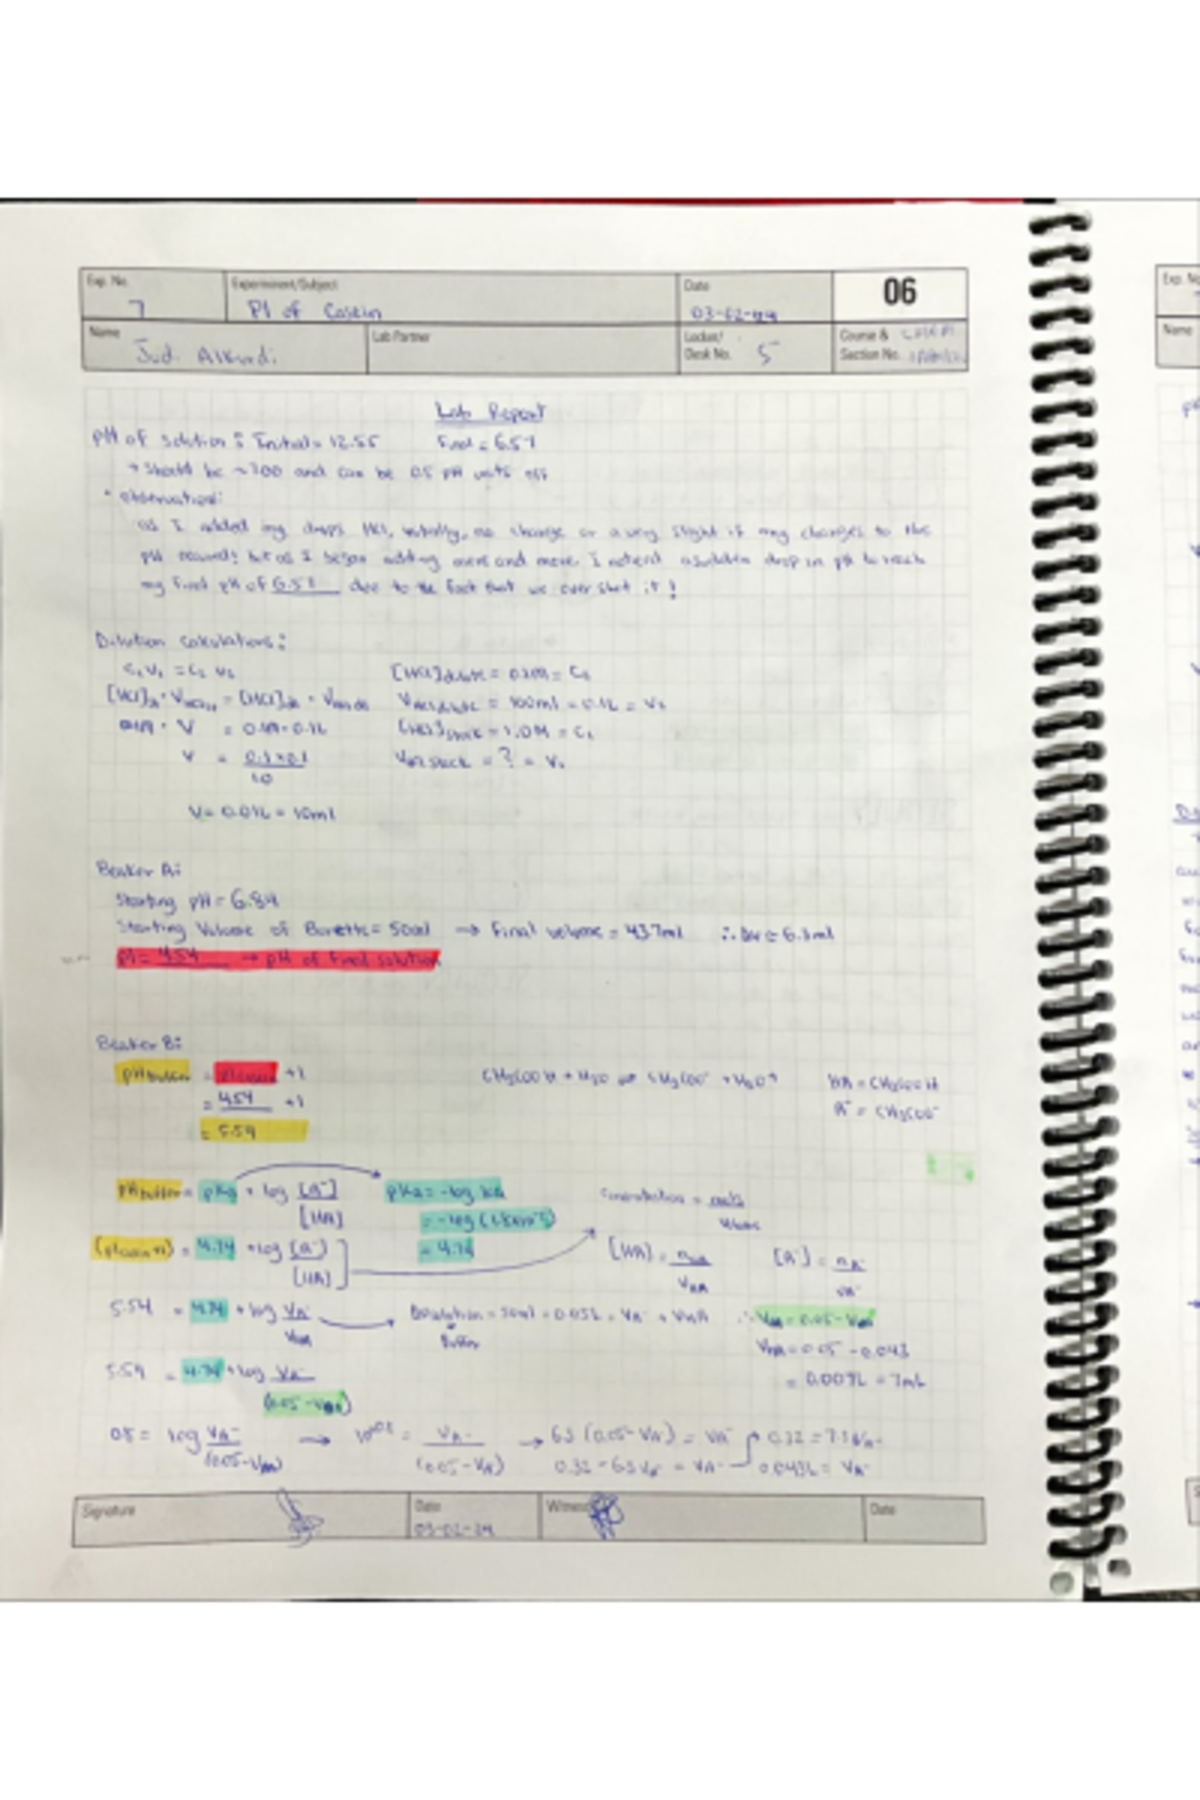 Exp. No. 7
Experiment/Subject PI of Casein
Date
06
Name Jud. Alkurdi
Lab Partner
Locker/Desk No. 5
Course & Section No.
Lab Report
pH of solution: Initial = 12.55 Final = 6.51
→ Should be ~7.00 and can be 0.5 pH units off
• observation:
as I added my drops HCl, initially, no change or a very slight if any changes to the
pH occured! but as I began adding more and more, I noticed a sudden drop in pH to reach
my final pH of 6.51 due to the fact that we over shot it!
Dilution calculations:
C₁V₁ = C₂V₂ [HCl]dilute = 0.1M = C₂
VHCl dilute = 100ml = 0.1L = V₂
V = 0.1M · 0.1L [HCl]stock = 1.0M = C₁
V = 0.1 × 0.1 / 1.0 VHCl stock = ? = V₁
V = 0.01L = 10ml
Beaker A:
Starting pH = 6.84
Starting Volume of Burette = 50ml → Final volume = 43.7ml ∴ ΔV = 6.3ml
pI = 4.54 → pH of final solution
Beaker B:
pHbuffer = pIcasein +1 CH₃COOH + H₂O ⇌ CH₃COO⁻ + H₃O⁺ HA = CH₃COOH
= 4.54 +1 A⁻ = CH₃COO⁻
= 5.54
pHbuffer = pKa + log [A⁻]/[HA] pKa = -log Ka Concentration = mols/Volume
= -log (1.8×10⁻⁵)
(pIcasein +1) = 4.74 + log [A⁻]/[HA] = 4.74 [HA] = nHA/VHA [A⁻] = nA⁻/VA⁻
5.54 = 4.74 + log VA⁻/VHA → = 50ml = 0.05L = VA⁻ + VHA ∴ VHA = 0.05 - VA⁻
Buffer
VHA = 0.05 - 0.043
5.54 = 4.74 + log VA⁻/(0.05 - VA⁻) = 0.007L = 7mL
0.8 = log VA⁻/(0.05 - VA⁻) → 10^0.8 = VA⁻/(0.05 - VA⁻) → 6.3 (0.05 - VA⁻) = VA⁻ 0.32 = 7.3VA⁻
0.32 - 6.3VA⁻ = VA⁻ 0.043L = VA⁻
Signature
Date 03-02-24
Witness
Date